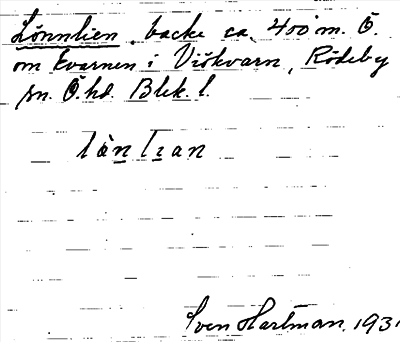 Lönnlien, backe ca. 400 m. Ö.
om kvarnen i Viökvarn, Rödeby
sn. Ö. hd. Blek. l.
Sven Hartman. 1931